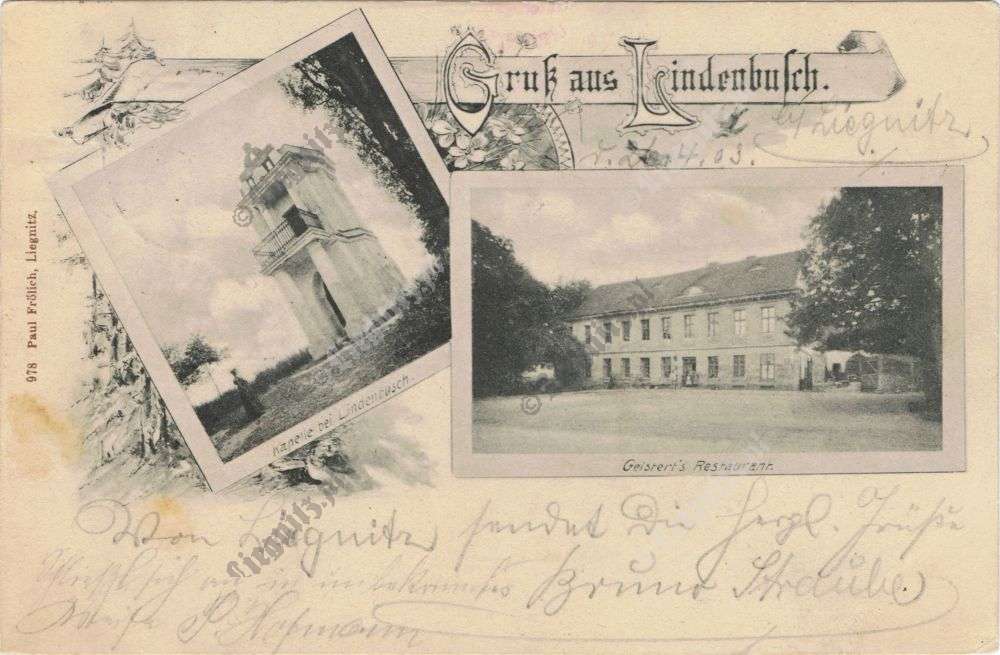 Gruß aus Lindenbusch.
b/ Liegnitz
d. 4. 03.
978 Paul Frölich, Liegnitz.
Kapelle bei Lindenbusch.
Geistert's Restaurant.
Von Liegnitz sendet Die herzl. Grüße
Bruno Straube
P. Hofmann
Liegnitz.pl